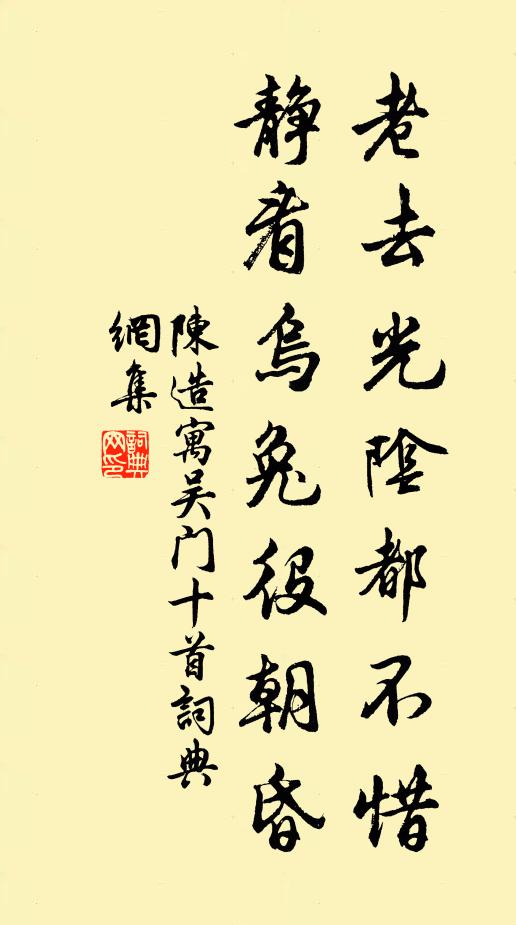 老去光陰都不惜
静看烏兔役朝昏
陳造寓吴门十首詞典
網集
詞典
网印